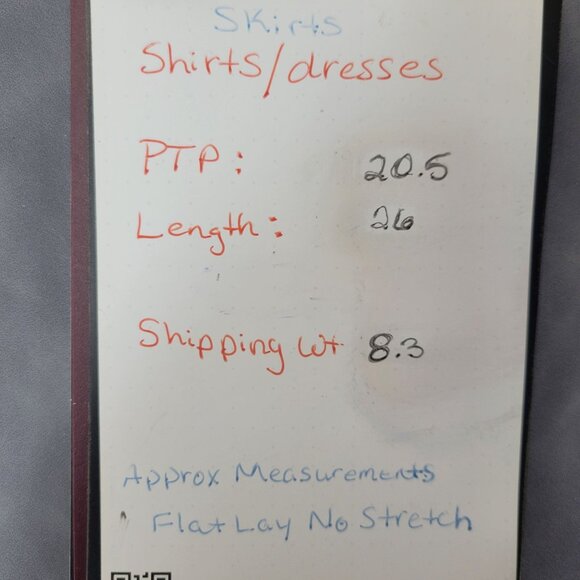 Skirts
Shirts/dresses
PTP: 20.5
Length: 26
Shipping Wt 8.3
Approx Measurements
Flat Lay No Stretch